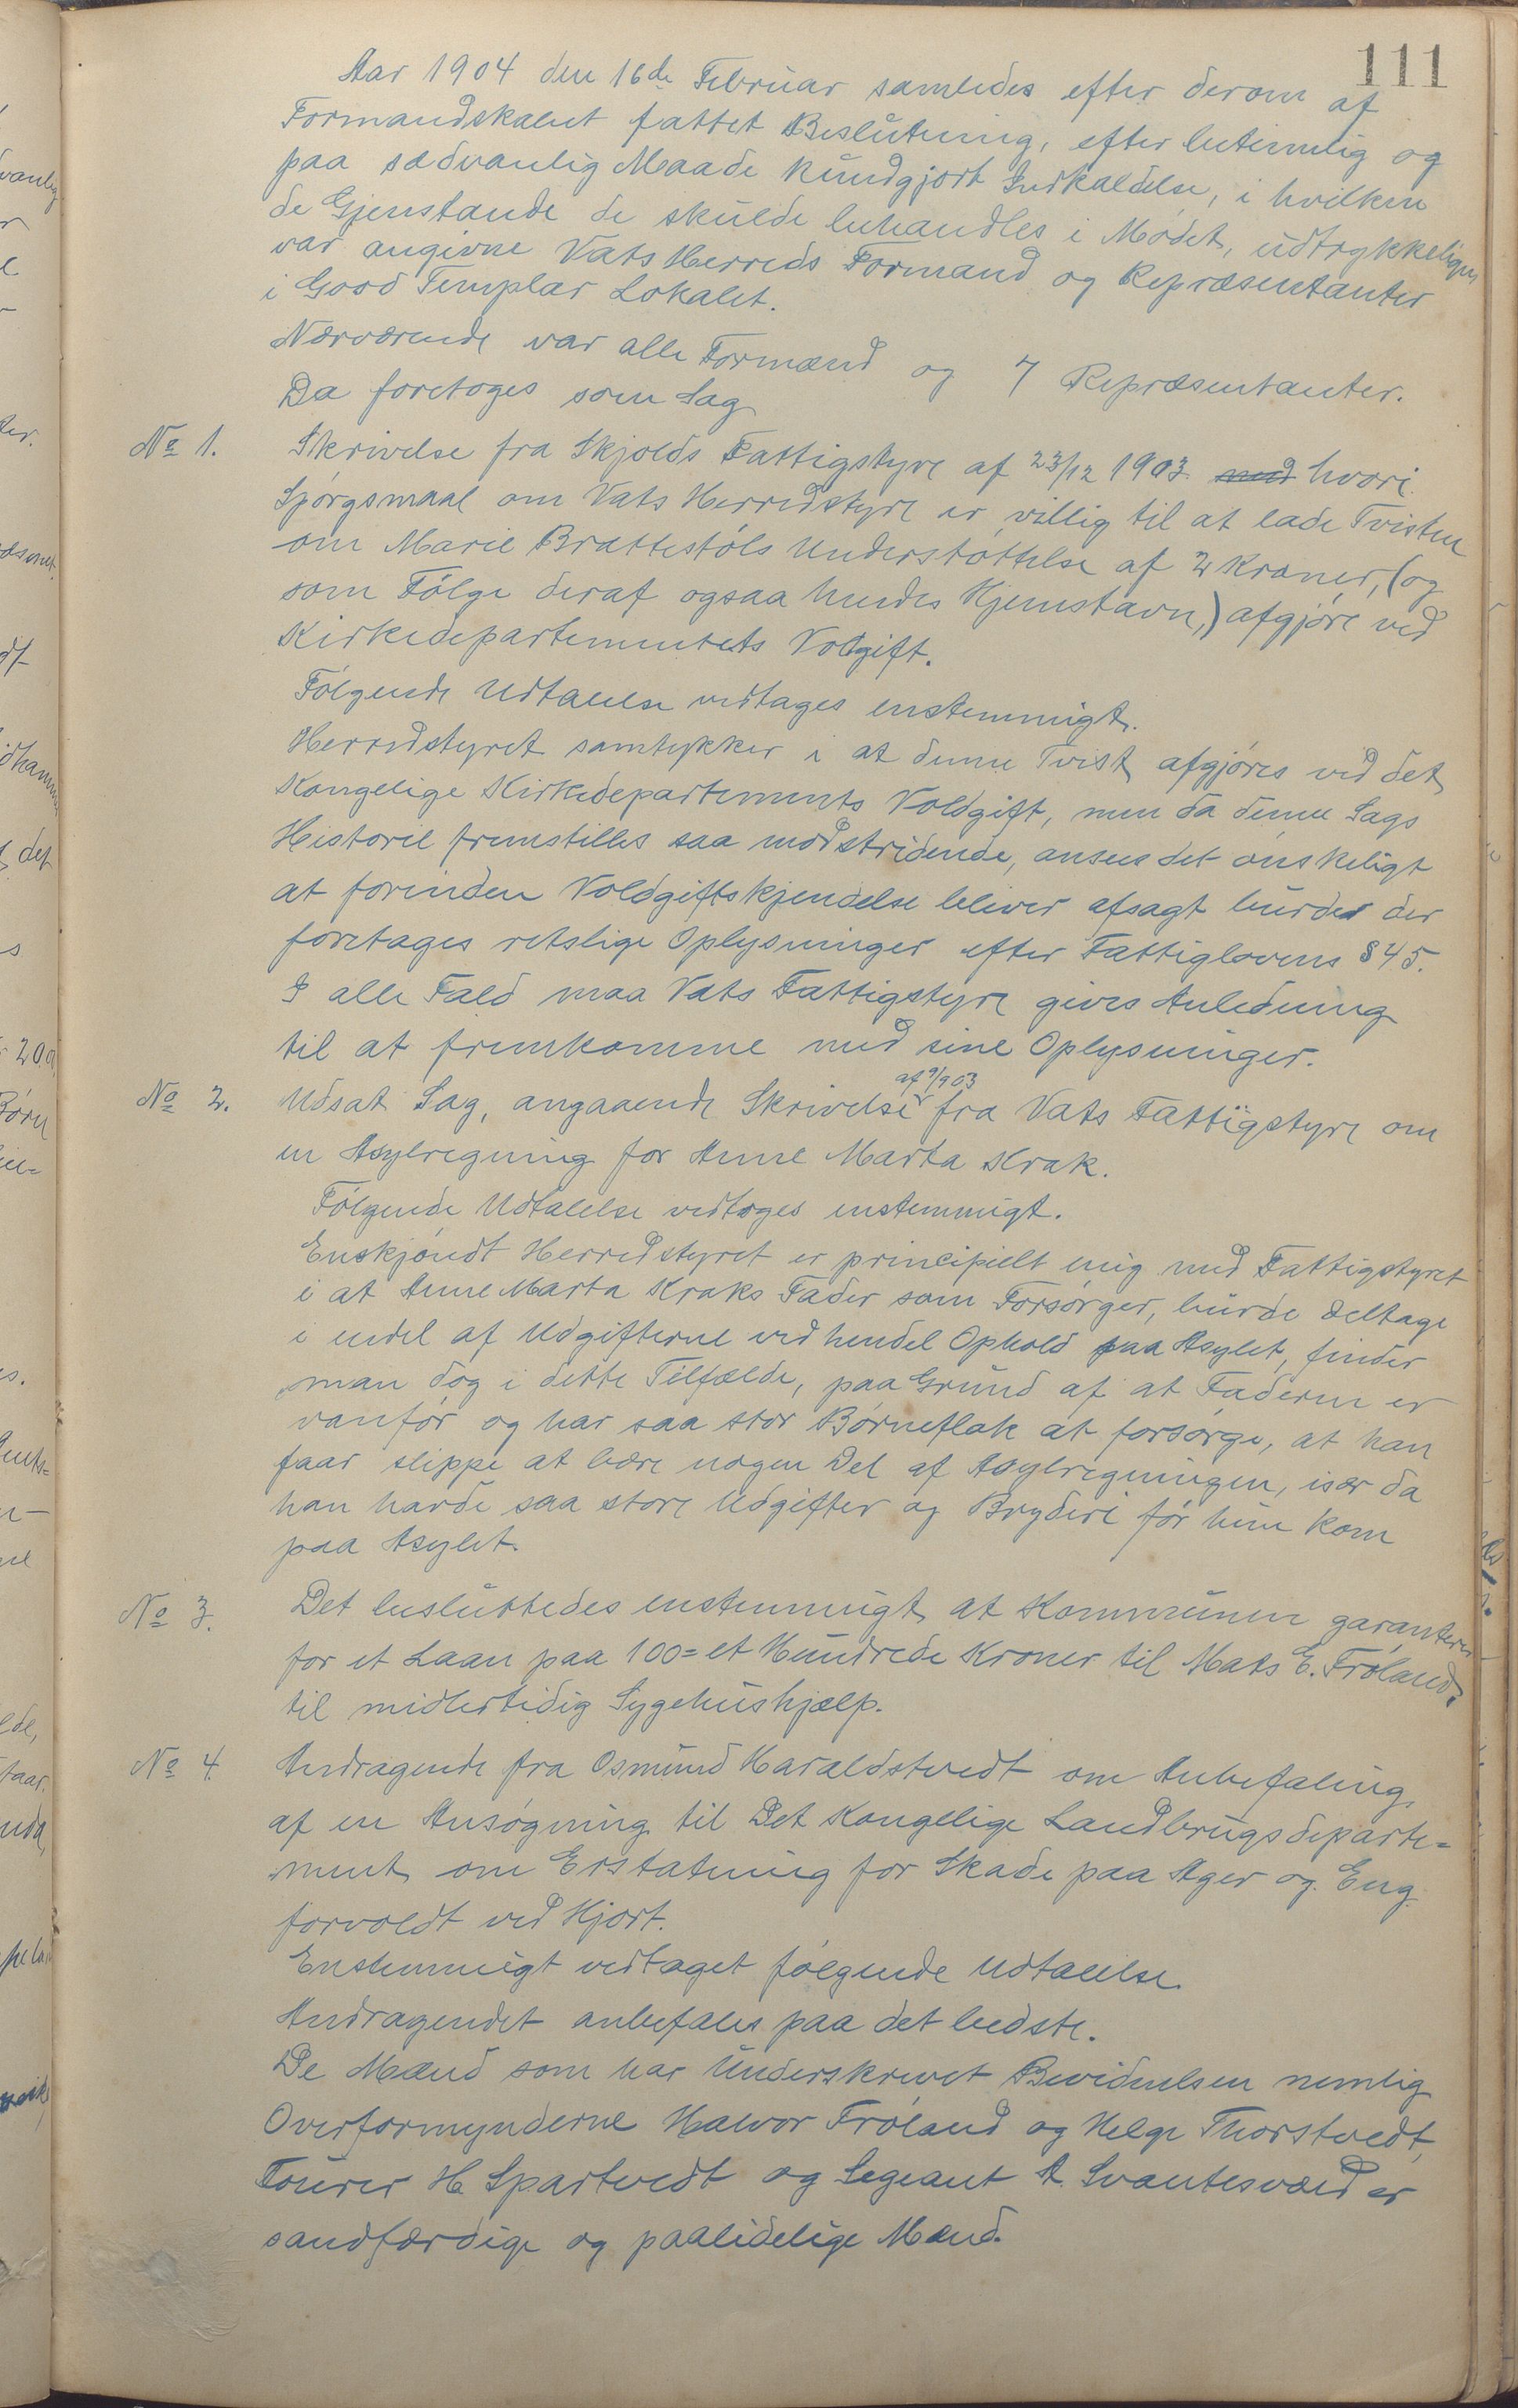 111
Aar 1904 den 16de Februar samledes efter derom af
Formandskabet fattet Beslutning, efter betimelig og
paa sædvanlig Maade kundgjort Indkaldelse, i hvilken
de Gjenstande de skulde behandles i Mødet, udtrykkeligen
var angivne Vats Herreds Formænd og Repræsentanter
i Good Templar Lokalet.
Nærværende var alle Formænd og 7 Repræsentanter.
Da foretoges som Sag
No 1. Skrivelse fra Skjolds Fattigstyre af 23/12 1903 med hvori
Spørgsmaal om Vats Herredstyre er villig til at lade Tvisten
om Marie Brattestøls Understøttelse af 2 Kroner, (og
som Følge deraf ogsaa hendes Hjemstavn,) afgjøre ved
Kirkedepartementets Voldgift.
Følgende Udtalelse vedtages enstemmigt.
Herredstyret samtykker i at denne Tvist afgjøres ved det
Kongelige Kirkedepartements Voldgift, men da denne Sags
Historie fremstilles saa modstridende, ansees det ønskeligt
at forinden Voldgiftskjendelse bliver afsagt burde der
foretages retslige Oplysninger efter Fattiglovens § 45.
I alle Fald maa Vats Fattigstyre gives Anledning
til at fremkomme med sine Oplysninger.
No 2. Udsat Sag, angaaende Skrivelse af 9/9 03 fra Vats Fattigstyre om
en Asylregning for Anne Marta Krak.
Følgende Udtalelse vedtoges enstemmigt.
Enskjøndt Herredstyret er principielt enig med Fattigstyret
i at Anne Marta Kraks Fader som Forsørger, burde deltage
i endel af Udgifterne ved hendel Ophold paa Asylet, finder
man dog i dette Tilfælde, paa Grund af at Faderen er
vanfør og har saa stor Børneflok at forsørge, at han
faar slippe at bære nogen Del af Asylregningen, især da
han havde saa store Udgifter og Bryderi før hun kom
paa Asylet.
No 3. Det besluttedes enstemmigt at Kommunen garanterer
for et Laan paa 100 = et Hundrede Kroner til Mats E. Frøland,
til midlertidig Sygehushjælp.
No 4. Andragende fra Osmund Haraldstvedt om Anbefaling
af en Ansøgning til Det Kongelige Landbrugsdeparte=
ment om Erstatning for Skade paa Ager og Eng
forvoldt ved Hjort.
Enstemmigt vedtaget følgende Udtalelse
Andragendet anbefales paa det bedste.
De Mænd som har Underskrevet Bevidnelsen nemlig
Overformynderne Halvor Frøland og Helge Thorstvedt,
Fourer H. Spartvedt og Segeant A. Svantesvold er
sandfærdige og paalidelige Mænd.